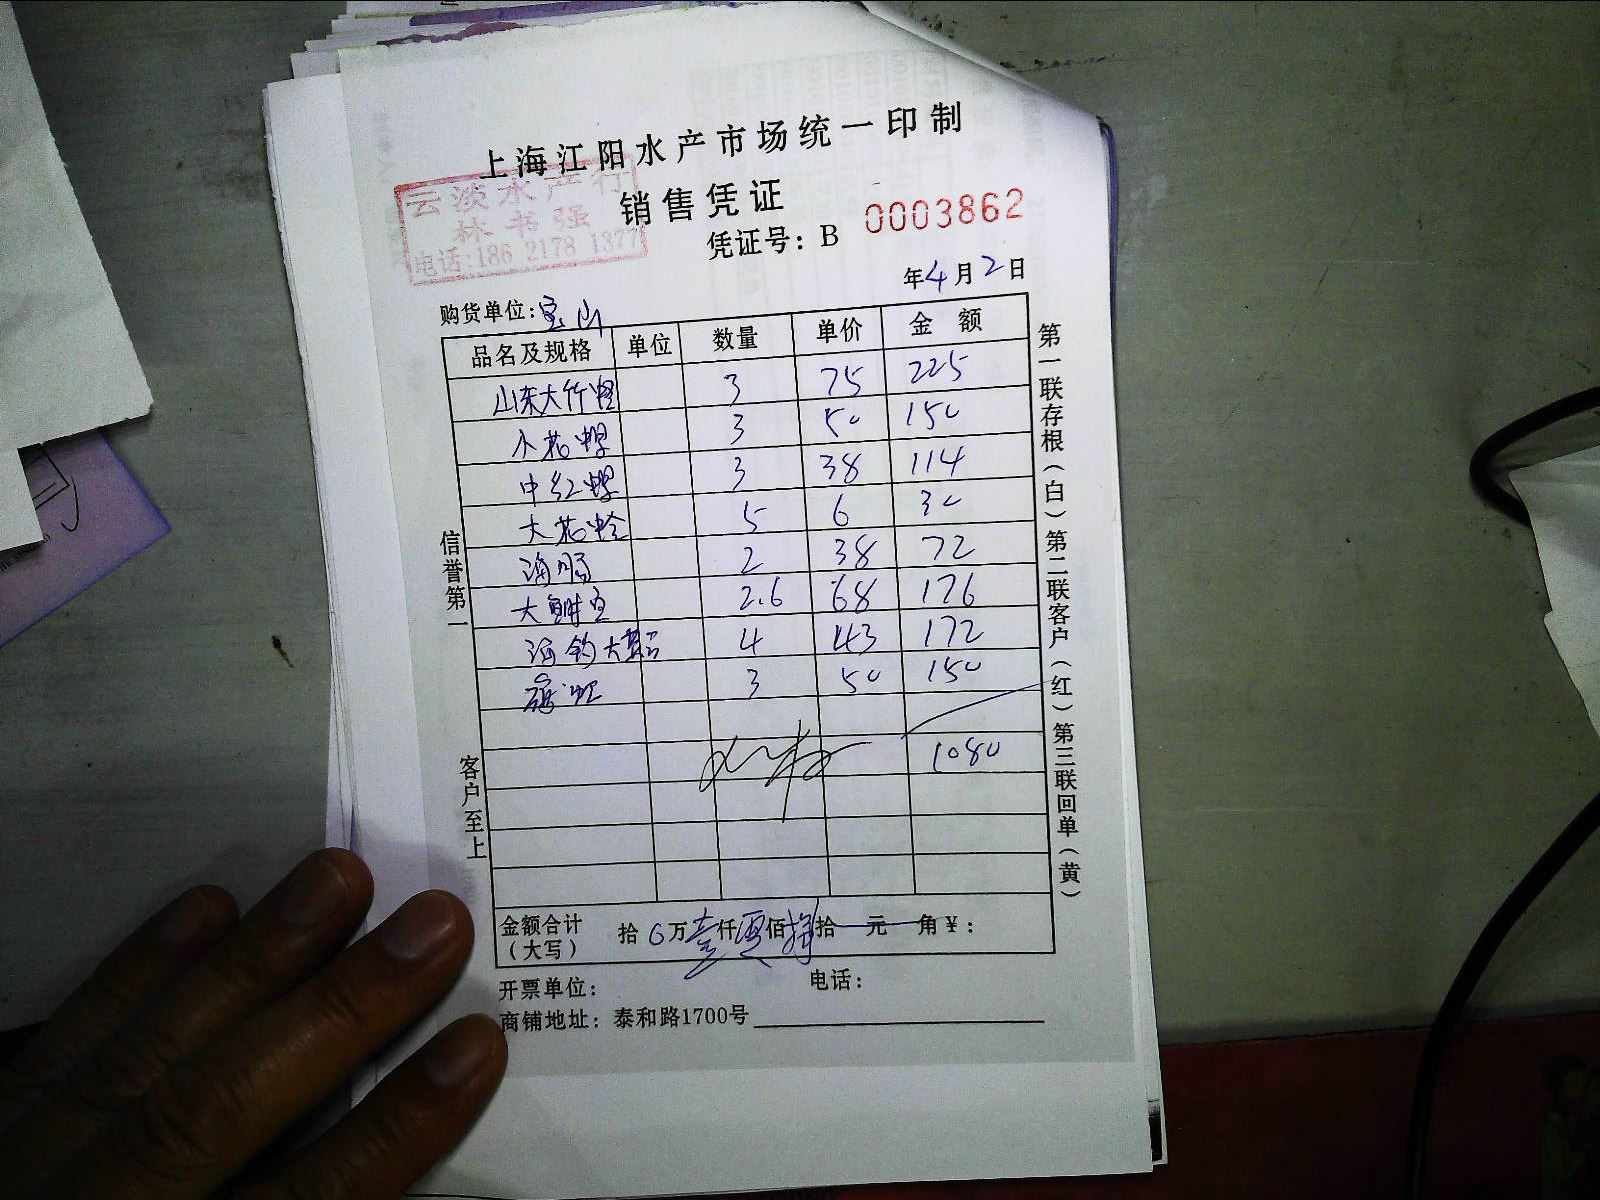 上海江阳水产市场统一印制
云淡水产行
林书强
电话:186 2178 1377
销售凭证
凭证号：B 0003862
年4月2日
购货单位:宝山
品名及规格 单位 数量 单价 金额
山东大竹蛏 3 75 225
小花螺 3 50 150
中红螺 3 38 114
大花蛤 5 6 30
海肠 2 38 72
大鲥鱼 2.6 68 176
海钓大 4 43 172
3 50 150
1080
金额合计（大写） 拾 0 万 壹 仟 零 佰 捌 拾 元 角 ¥：
开票单位： 电话：
商铺地址：泰和路1700号
信誉第一 客户至上
第一联存根（白）第二联客户（红）第三联回单（黄）